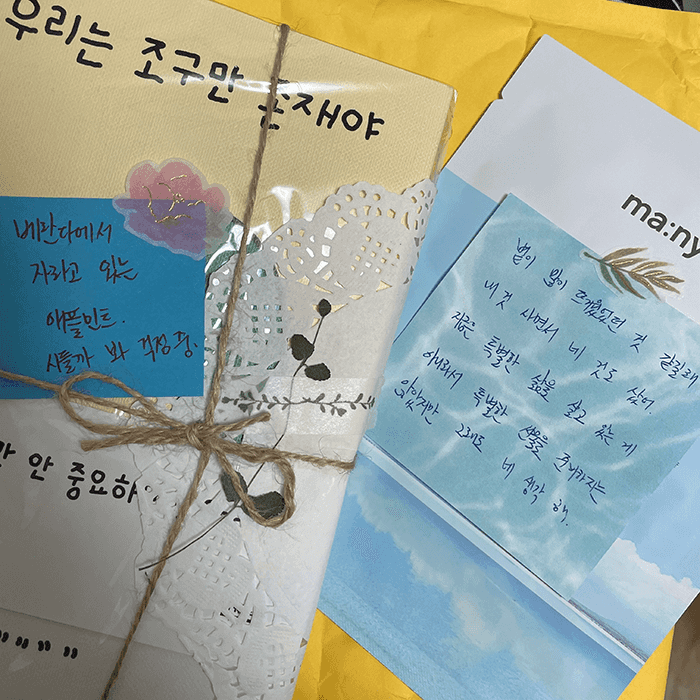 우리는 조구만 존재야
베란다에서
자라고 있는
애플민트.
시들까 봐 걱정 중.
안 중요하
ma:ny
볕이 많이 뜨거웠던 것 같길래
내 것 사면서 네 것도 샀어.
지금은 특별한 삶을 살고 있는 게
아니라서 특별한 선물을 준비하지는
않았지만 그래도
네 생각 해.